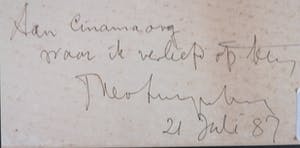 Aan Cinamaorg
waar ik verliefd op ben
21 Juli 87